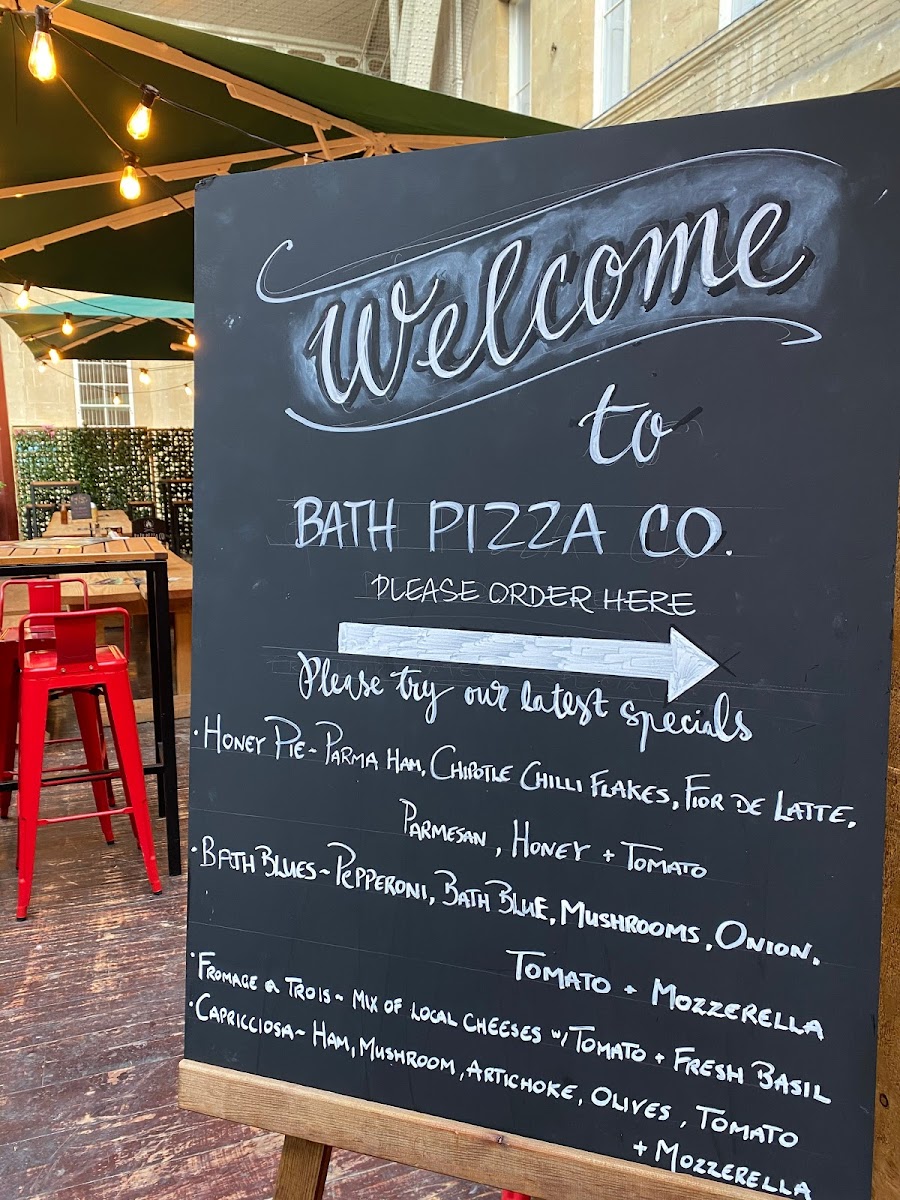 Welcome
to
BATH PIZZA CO.
PLEASE ORDER HERE
Please try our latest specials
· HONEY PIE ~ PARMA HAM, CHIPOTLE CHILLI FLAKES, FIOR DE LATTE,
PARMESAN, HONEY + TOMATO
· BATH BLUES ~ PEPPERONI, BATH BLUE, MUSHROOMS, ONION,
TOMATO + MOZZERELLA
· FROMAGE a TROIS ~ MIX OF LOCAL CHEESES w/ TOMATO + FRESH BASIL
· CAPRICCIOSA ~ HAM, MUSHROOM, ARTICHOKE, OLIVES, TOMATO
+ MOZZERELLA